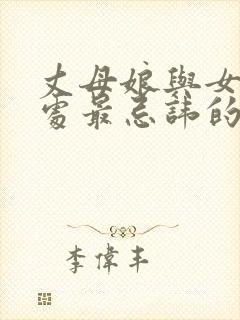 丈母娘與女
處最忌諱的
李偉丰